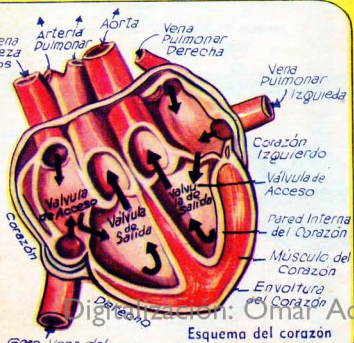 Aorta
Arteria
Pulmonar
Vena
Pulmonar
Derecha
Vena
Pulmonar
Izquieda
Corazón
Izquierdo
Válvula de
Acceso
Pared Interna
del Corazón
Músculo del
Corazón
Envoltura
del Corazón
Valvula
de Acceso
Valvula
de
Salida
Valvu
la de
Salida
Corazón
Derecho
Digitalización: Omar Ac
Esquema del corazón
Gran Vena del